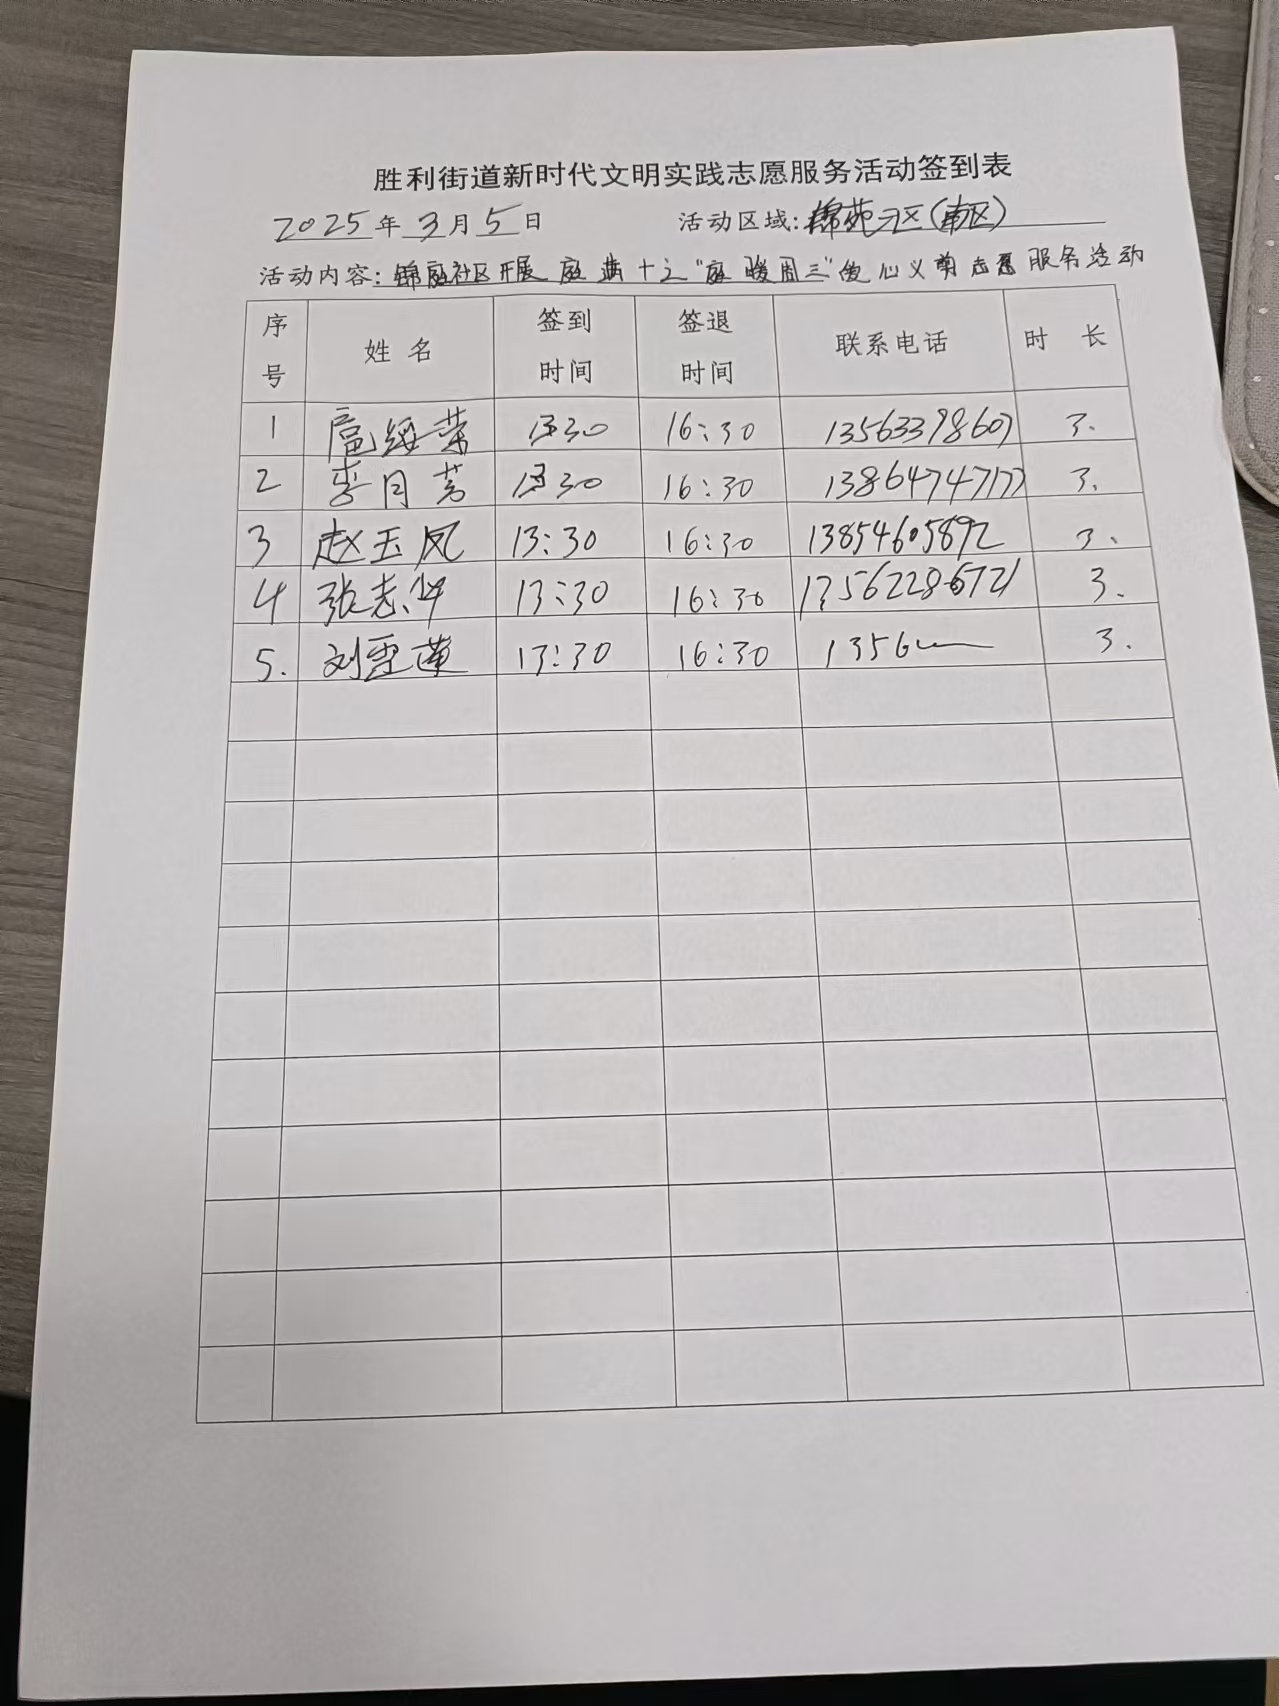 胜利街道新时代文明实践志愿服务活动签到表
2025年3月5日 活动区域:锦苑二区(南区)
活动内容:锦庭社区开展庭满十之"庭暖周三"爱心义剪志愿服务活动
序号 姓名 签到时间 签退时间 联系电话 时长
1 扈绥荣 13:30 16:30 13563398607 3.
2 李月芳 13:30 16:30 3.
3 赵玉凤 13:30 16:30 13854605892 3.
4 张志华 13:30 16:30 13562286721 3.
5. 刘雪莲 13:30 16:30 1356 3.